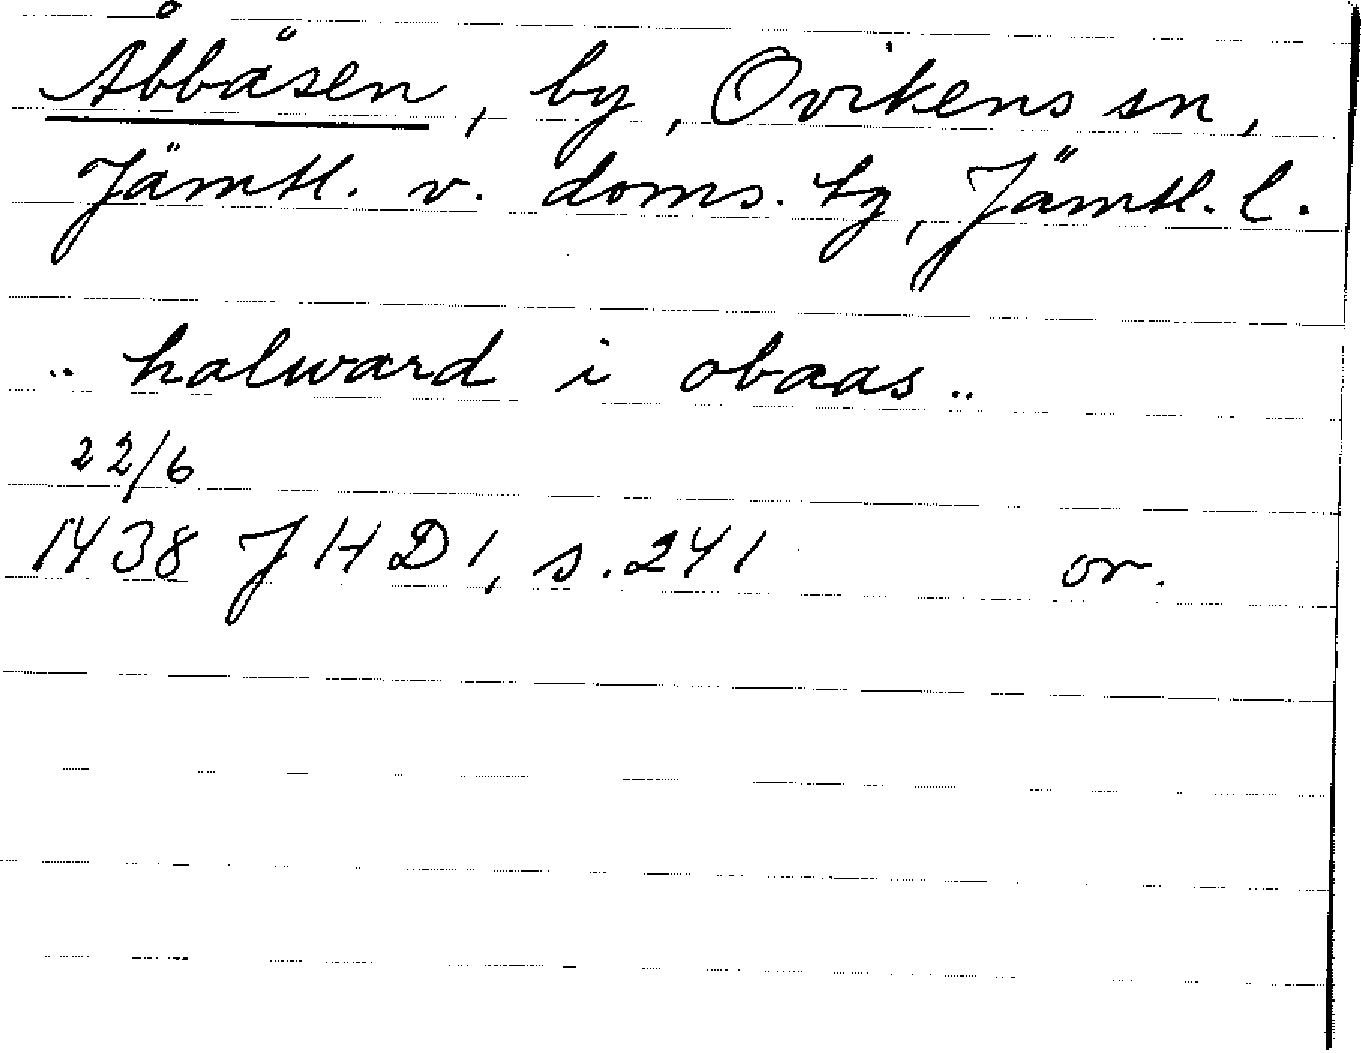 Åbbåsen, by, Ovikens sn,
Jämtl. v. doms. tg, Jämtl. l.
.. halward i obaas ..
22/6
1438 JHD 1, s. 241 or.